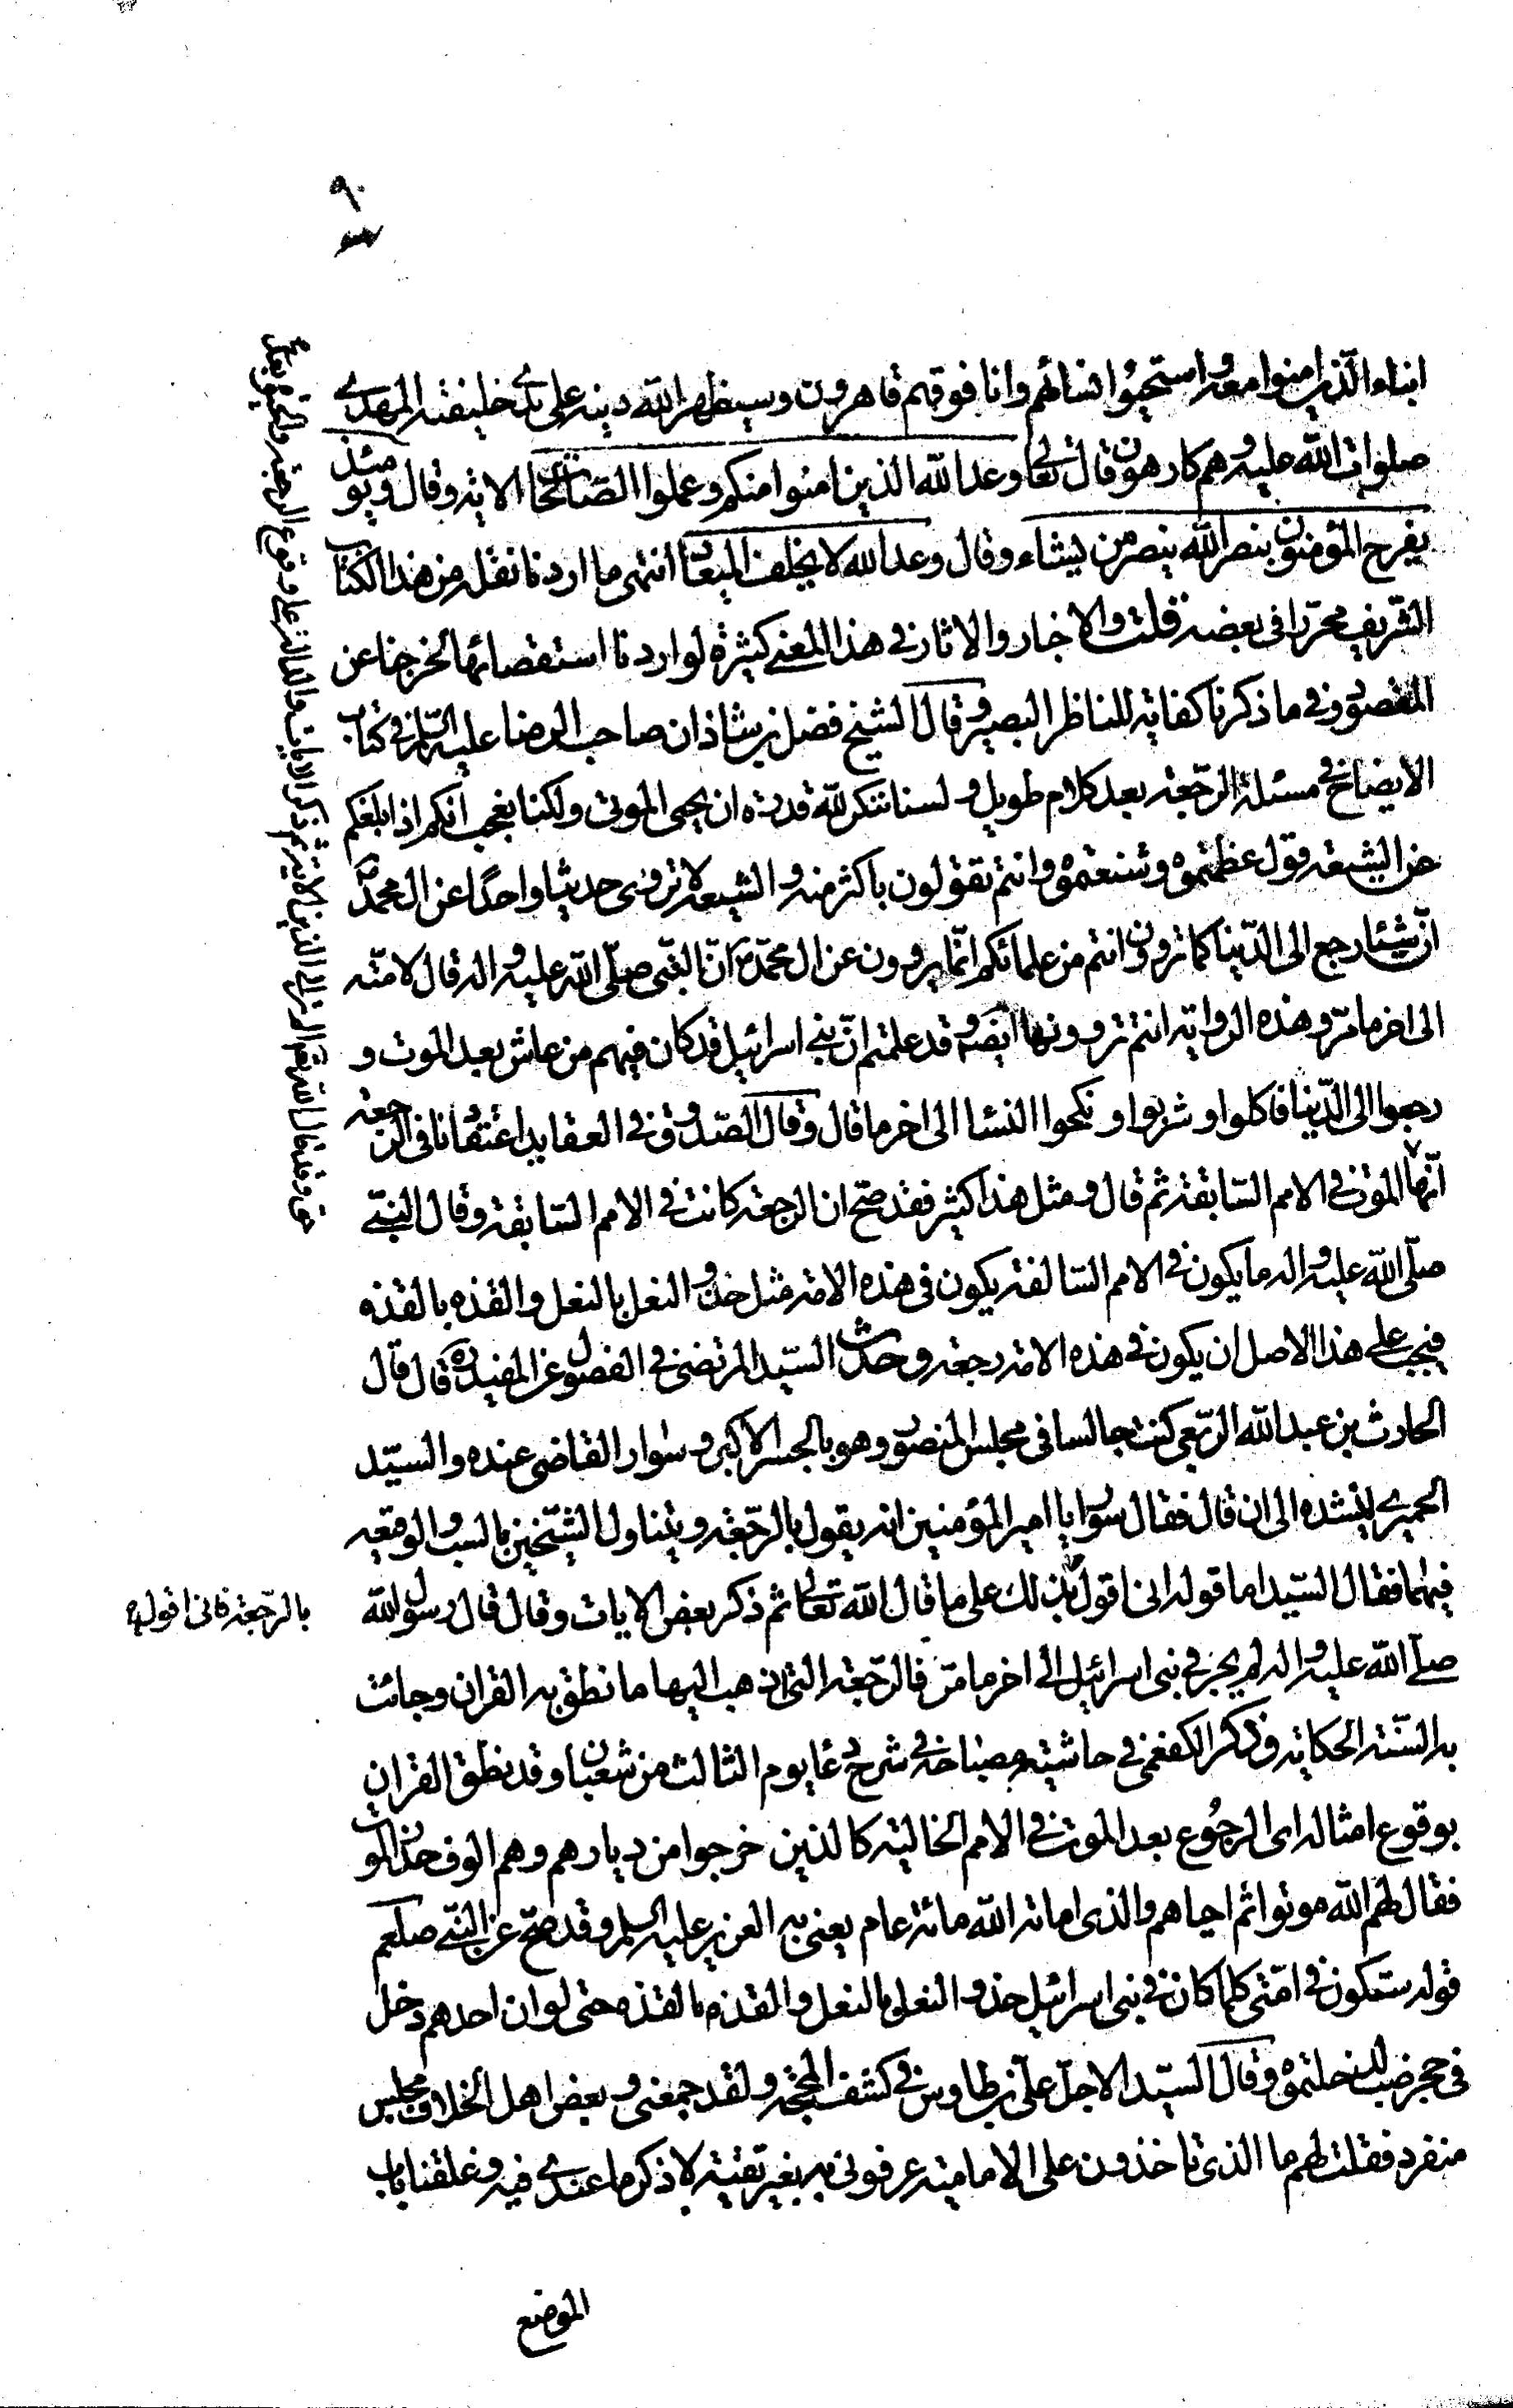 ٩٠
ابناء الّذين امنوا معه واستحيوا نسائهم وانا فوقهم قاهرون وسيظهر الله دينه على يدى خليفته المهدى
صلوات الله عليه وهم كارهون قال تعالى وعد الله الذين امنوا منكم وعملوا الصّالحات الاية وقال ويومئذ
يفرح المؤمنون بنصر الله ينصر من يشاء وقال وعد الله لا يخلف الميعاد انتهى ما اردنا نقله من هذا الكتاب
الشّريف محرّرا فى بعضه قلت والاخبار والاثار فى هذا المعنى كثيرة لو اردنا استقصائها لخرجنا عن
المقصود وفى ما ذكرنا كفاية للناظر البصير وقال الشيخ فضل بن شاذان صاحب الرضا عليه السّلم فى كتاب
الايضاح فى مسئلة الرّجعة بعد كلام طويل ولسنا ننكر لله قدرة ان يحيى الموتى ولكنا نعجب انكم اذا بلغكم
عن الشيعة قول عظمتموه وشنعتموه وانتم تقولون باكثر منه والشيعة لا تروى حديثا واحدًا عن ال محمّد
انّ شيئا رجع الى الدّنيا كما تروون انتم من علمائكم انّما يروون عن ال محمّد انّ النّبى صلّى الله عليه واله قال لامّته
الى اخر ما مرّ وهذه الرواية انتم تروونها ايضه وقد علمتم انّ بنى اسرائيل قد كان فيهم من عاش بعد الموت و
رجعوا الى الدّنيا فاكلوا وشربوا ونكحوا النساا الى اخر ما قال وقال الصّدوق فى العقايد اعتقادنا فى الرّجعة
انّها الموت فى الامم السّابقة ثم قال ومثل هذا كثير فقد صحّ ان الرجعة كانت فى الامم السّابقة وقال النبىّ
صلّى الله عليه واله ما يكون فى الامم السّالفة يكون فى هذه الامة مثل حذو النعل بالنعل والقذه بالقذه
فيجب على هذا الاصل ان يكون فى هذه الامة رجعة وحدث السّيد المرتضى فى الفصول عن المفيد ره قال قال
الحارث بن عبد الله الرّبعى كنت جالسا فى مجلس المنصور وهو بالجسر الاكبر وسوار القاضى عنده والسيّد
الحميرى ينشده الى ان قال فقال سوار يا امير المؤمنين انه يقول بالرّجعة ويتناول الشّيخين بالسب والوقعيه
فيهما فقال السّيد اما قوله انى اقول بذلك على ما قال الله تعالى ثم ذكر بعض الايات وقال قال رسول الله
بالرّجعة فانى اقول به
صلّى الله عليه واله لم يجر فى بنى اسرائيل الى اخر ما مرّ فالرّجعة التى اذهب اليها ما نطق به القران وجائت
به السّنّة الحكاية وذكر الكفعمى فى حاشية مصباحه فى شرح دعا يوم الثالث من شعبان وقد نطق القران
بوقوع امثاله اى الرجُوع بعد الموت فى الامم الخالية كالذين خرجوا من ديارهم وهم الوف حذر الموت
فقال لهم الله موتوا ثم احياهم والذى اماته الله مائة عام يعنى به العزير عليه السلم وقد صحّ عن النبىّ صلعم
قوله ستكون فى امّتى كلما كان فى بنى اسرائيل حذو النعل بالنعل والقذه بالقذه حتى لو ان احدهم دخل
فى حجر ضب لدخلتموه وقال السيّد الاجلّ علّى بن طاوس فى كشف المحجّة ولقد جمعنى وبعض اهل الخلاف مجلس
منفرد فقلت لهم ما الذى تاخذون على الامامية عرفونى به بغير تقية لاذكر ما عندى فيه وغلقنا باب
الموضع